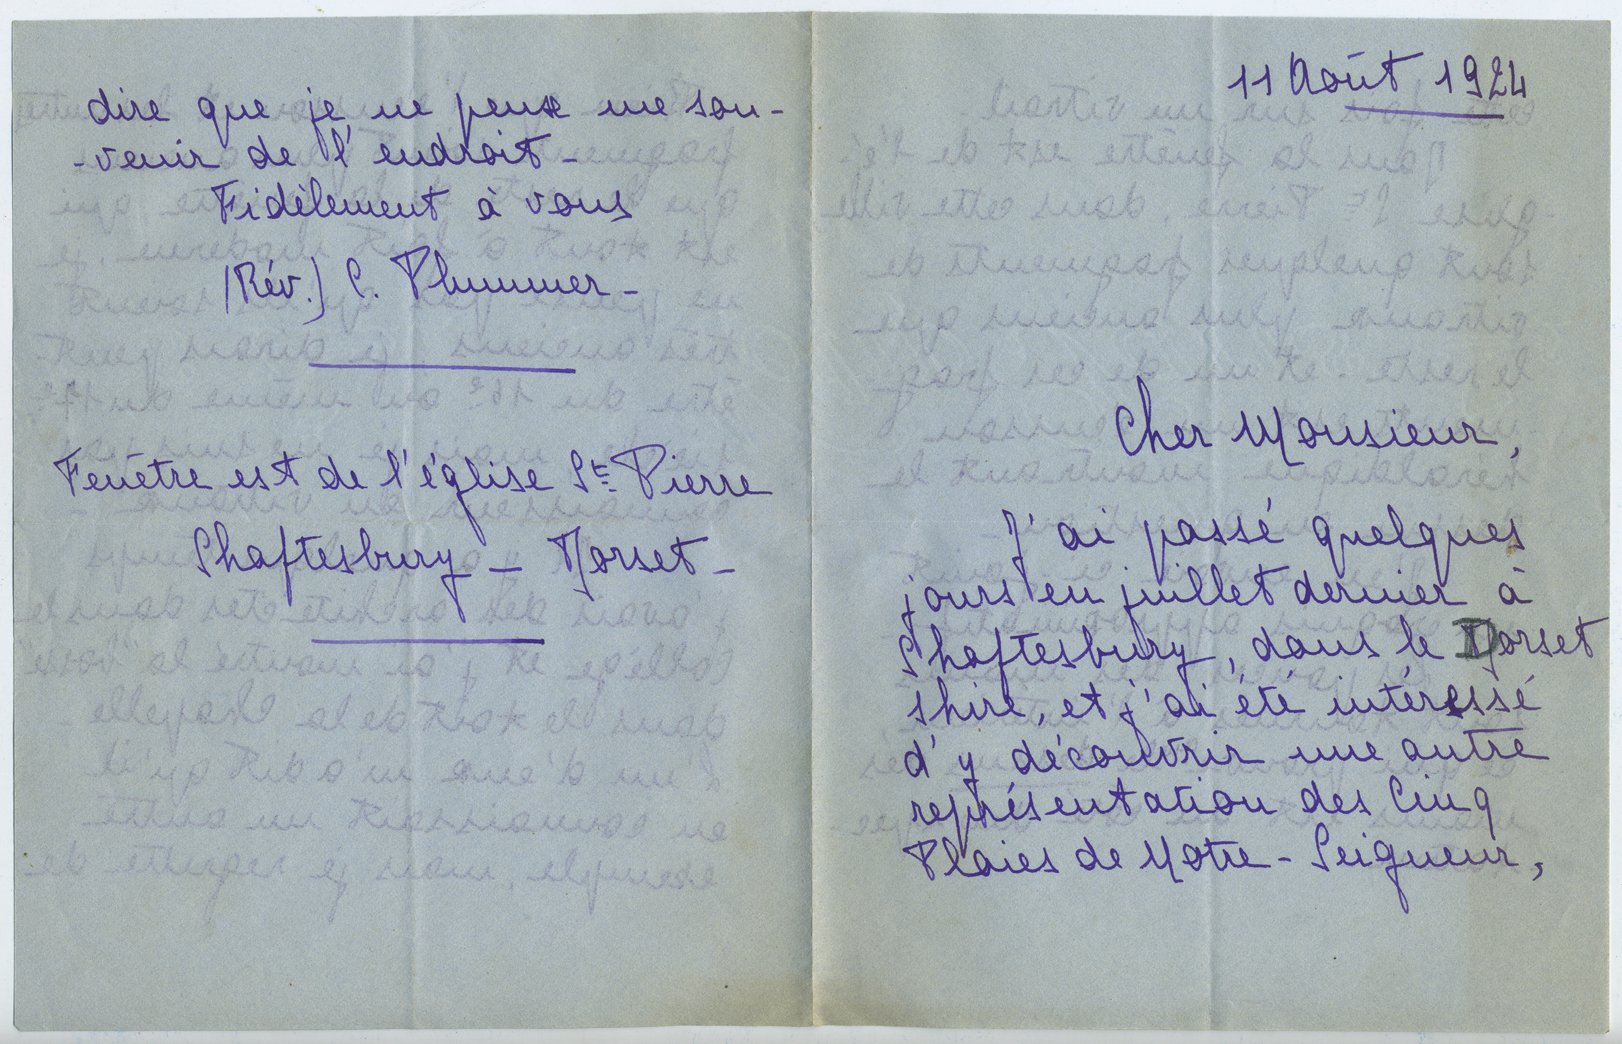 11 Août 1924
Cher Monsieur,
J'ai passé quelques
jours en juillet dernier à
Shaftesbury, dans le Dorset
shire, et j'ai été intéressé
d'y découvrir une autre
représentation des Cinq
Plaies de Notre-Seigneur,
dire que je ne peux me sou-
-venir de l'endroit-
Fidèlement à vous
(Rév.) C. Plummer-
Fenêtre est de l'église St Pierre
Shaftesbury - Dorset -